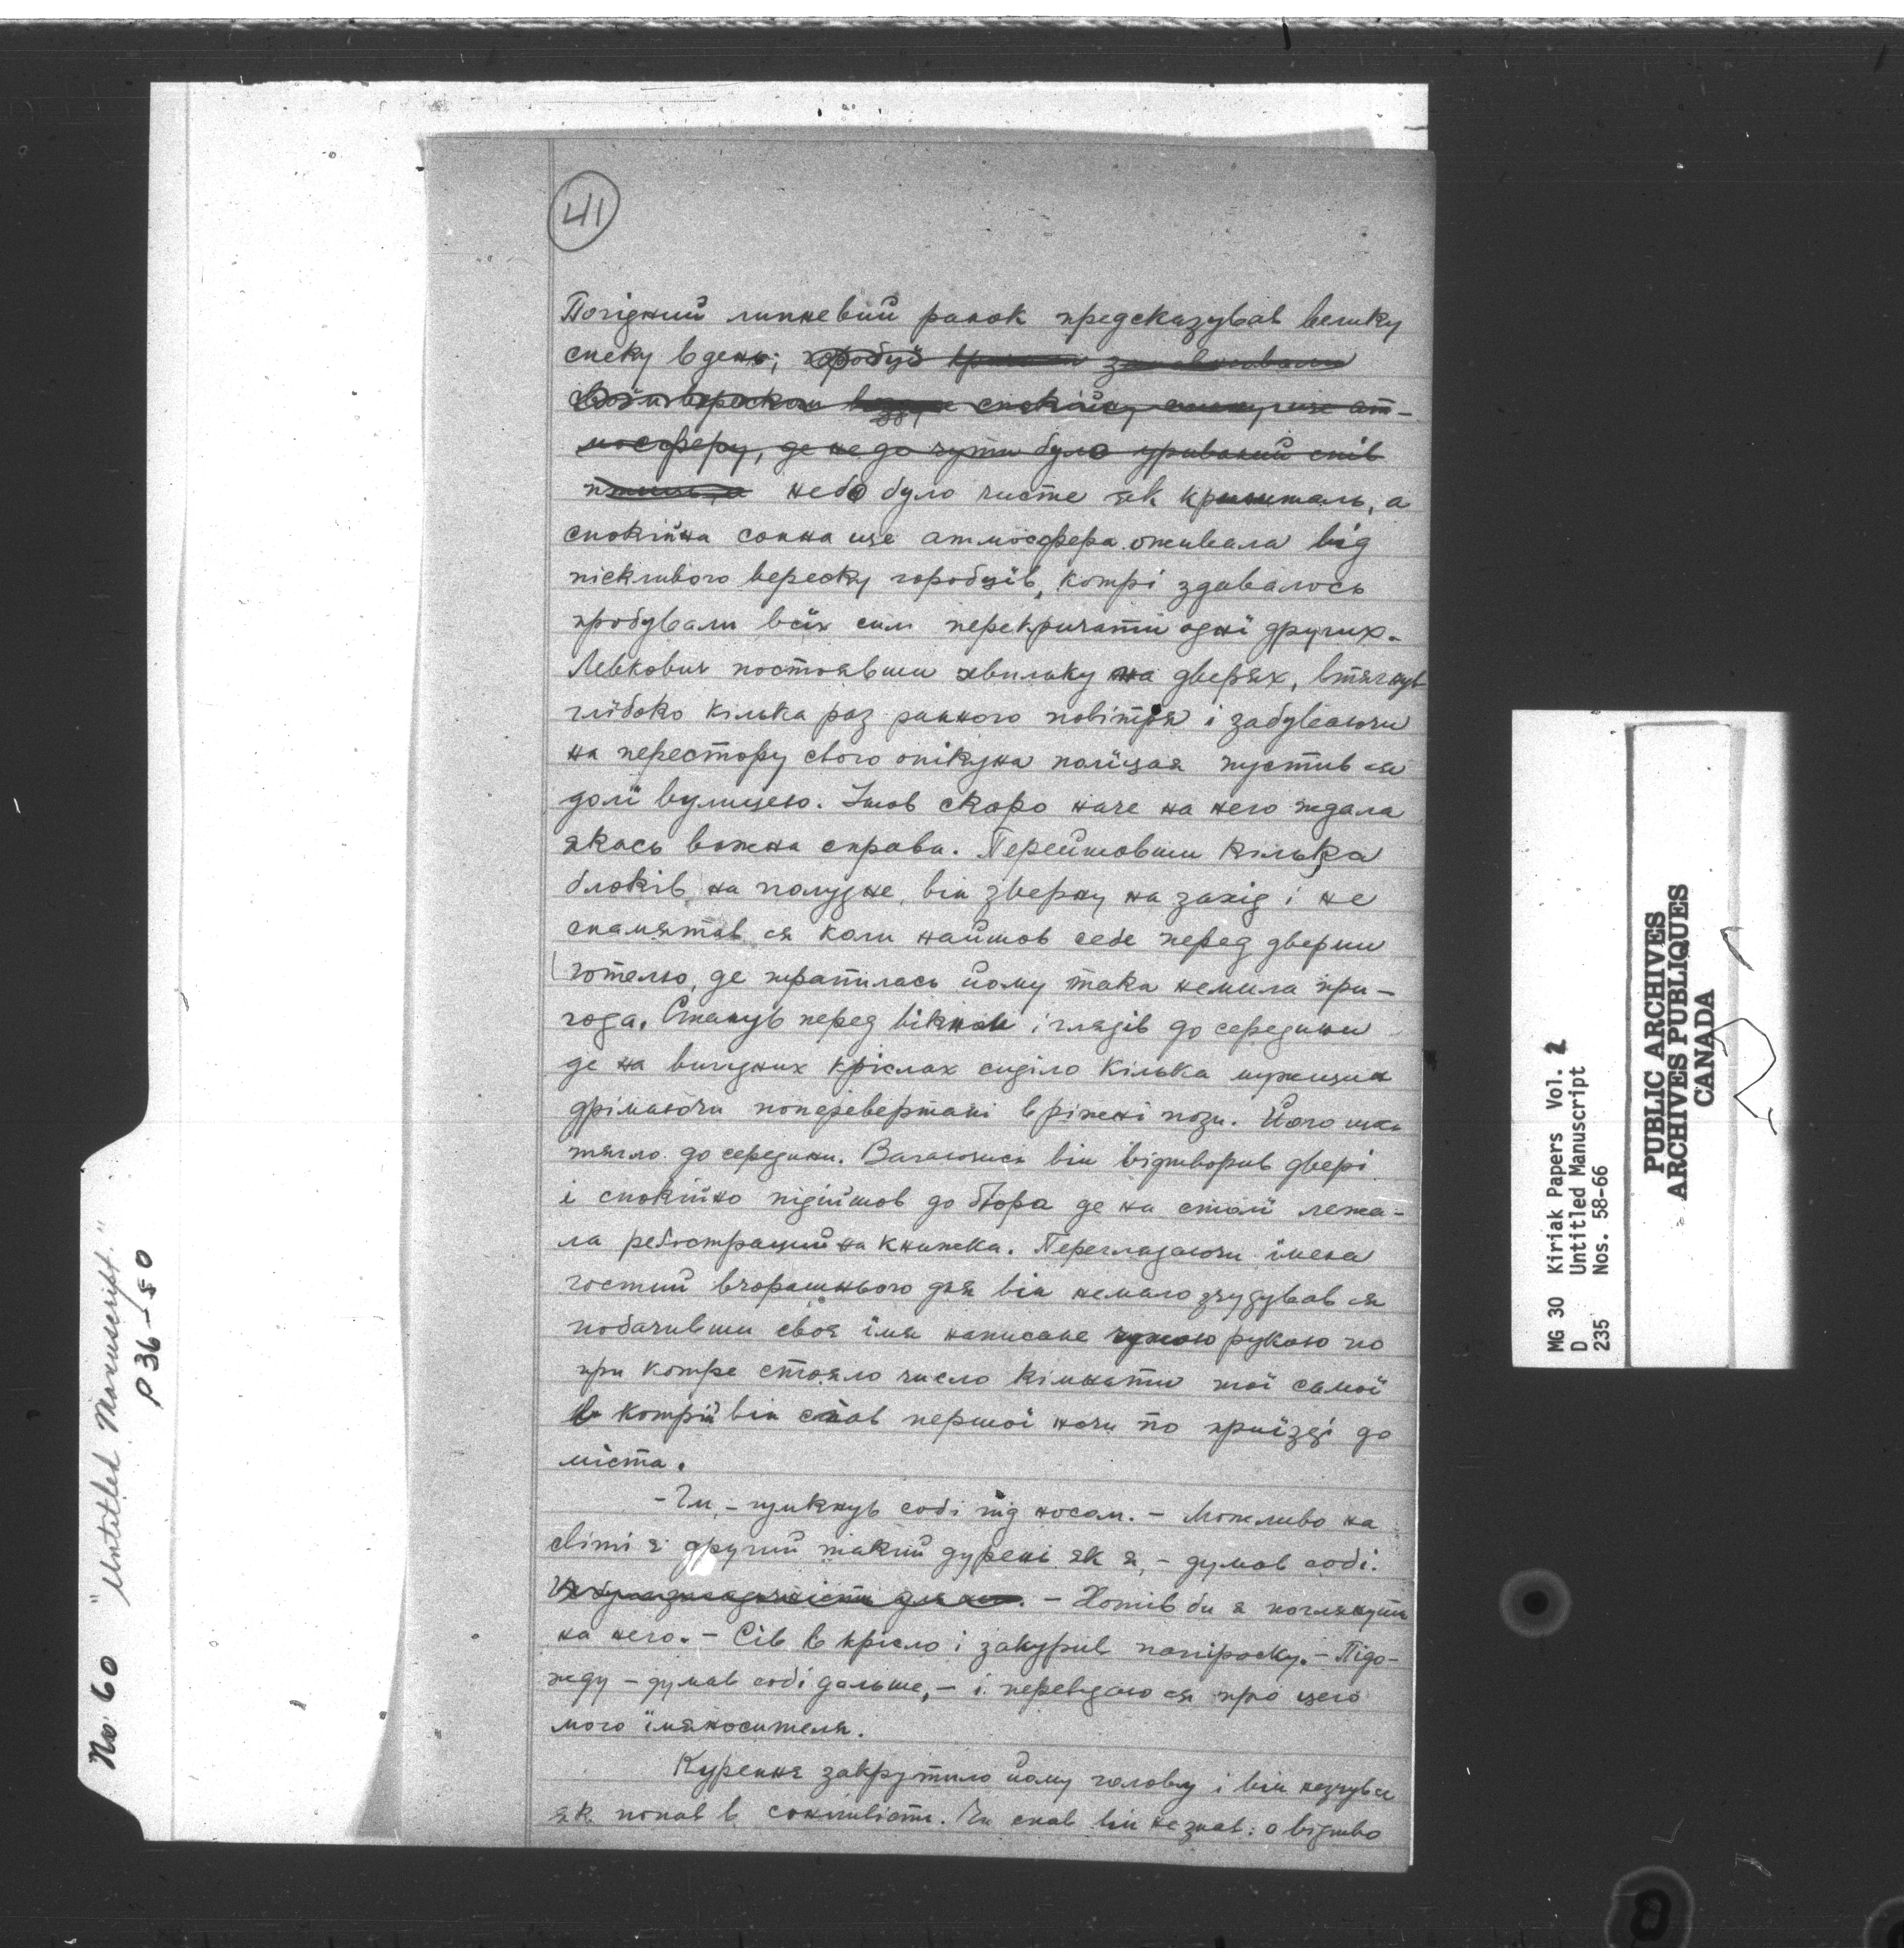 41
Погідний липневий ранок предсказував велику
спеку вдень; горобці
своїм вереском спокійну сонну ще ат-
мосферу, де не де чути було уриваний спів
небо було чисте як кришталь, а
спокійна сонна ще атмосфера оживала від
пісклявого вереску горобців, котрі здавалось
пробували всіх сил перекричати одні других.
Левкович постоявши хвильку на дверях, втягнув
глибоко кілька раз ранного повітря і забуваючи
на пересторогу свого опікуна поліцая пустив ся
долі вулицею. Ішов скоро наче на него ждала
якась важна справа. Перейшовши кілька
блоків на полудне, він звернув на захід і не
спамятав ся коли найшов себе перед дверми
готелю, де трапилась йому така немила при-
года. Станув перед вікном і глядів до середини
де на вигідних кріслах сиділо кілька мужщин
дрімаючи поперевертані в ріжні пози. Його
тягло до середини. Вагаючись він відтворив двері
і спокійно підійшов до бюра де на столі лежа-
ла реєстраційна книжка. Переглядаючи імена
гостий вчорашнього дня він немало здудував ся
побачивши своя імя написане чужою рукою по
при котре стояло число кімнати тої самої
в котрій він спав першої ночи по приїзді до
міста.
- Гм, - гумкнув собі під носом. - Можливо на
світі є другий такий дурень як я, - думав собі.
- Хотів би я поглянути
на него. - Сів в крісло і закурив папіроску. - Підо-
жду - думав собі дальше, - і перевідаю ся про цего
мого імяносителя.
Курення закрутило йому голову і він незчувся
як попав в сонливість. Чи спав він не знав: о відтво
No. 60 "Untitled Manuscript."
P 36-50
MG 30 Kiriak Papers Vol. 2
D Untitled Manuscript
235 Nos. 58-66
PUBLIC ARCHIVES
ARCHIVES PUBLIQUES
CANADA